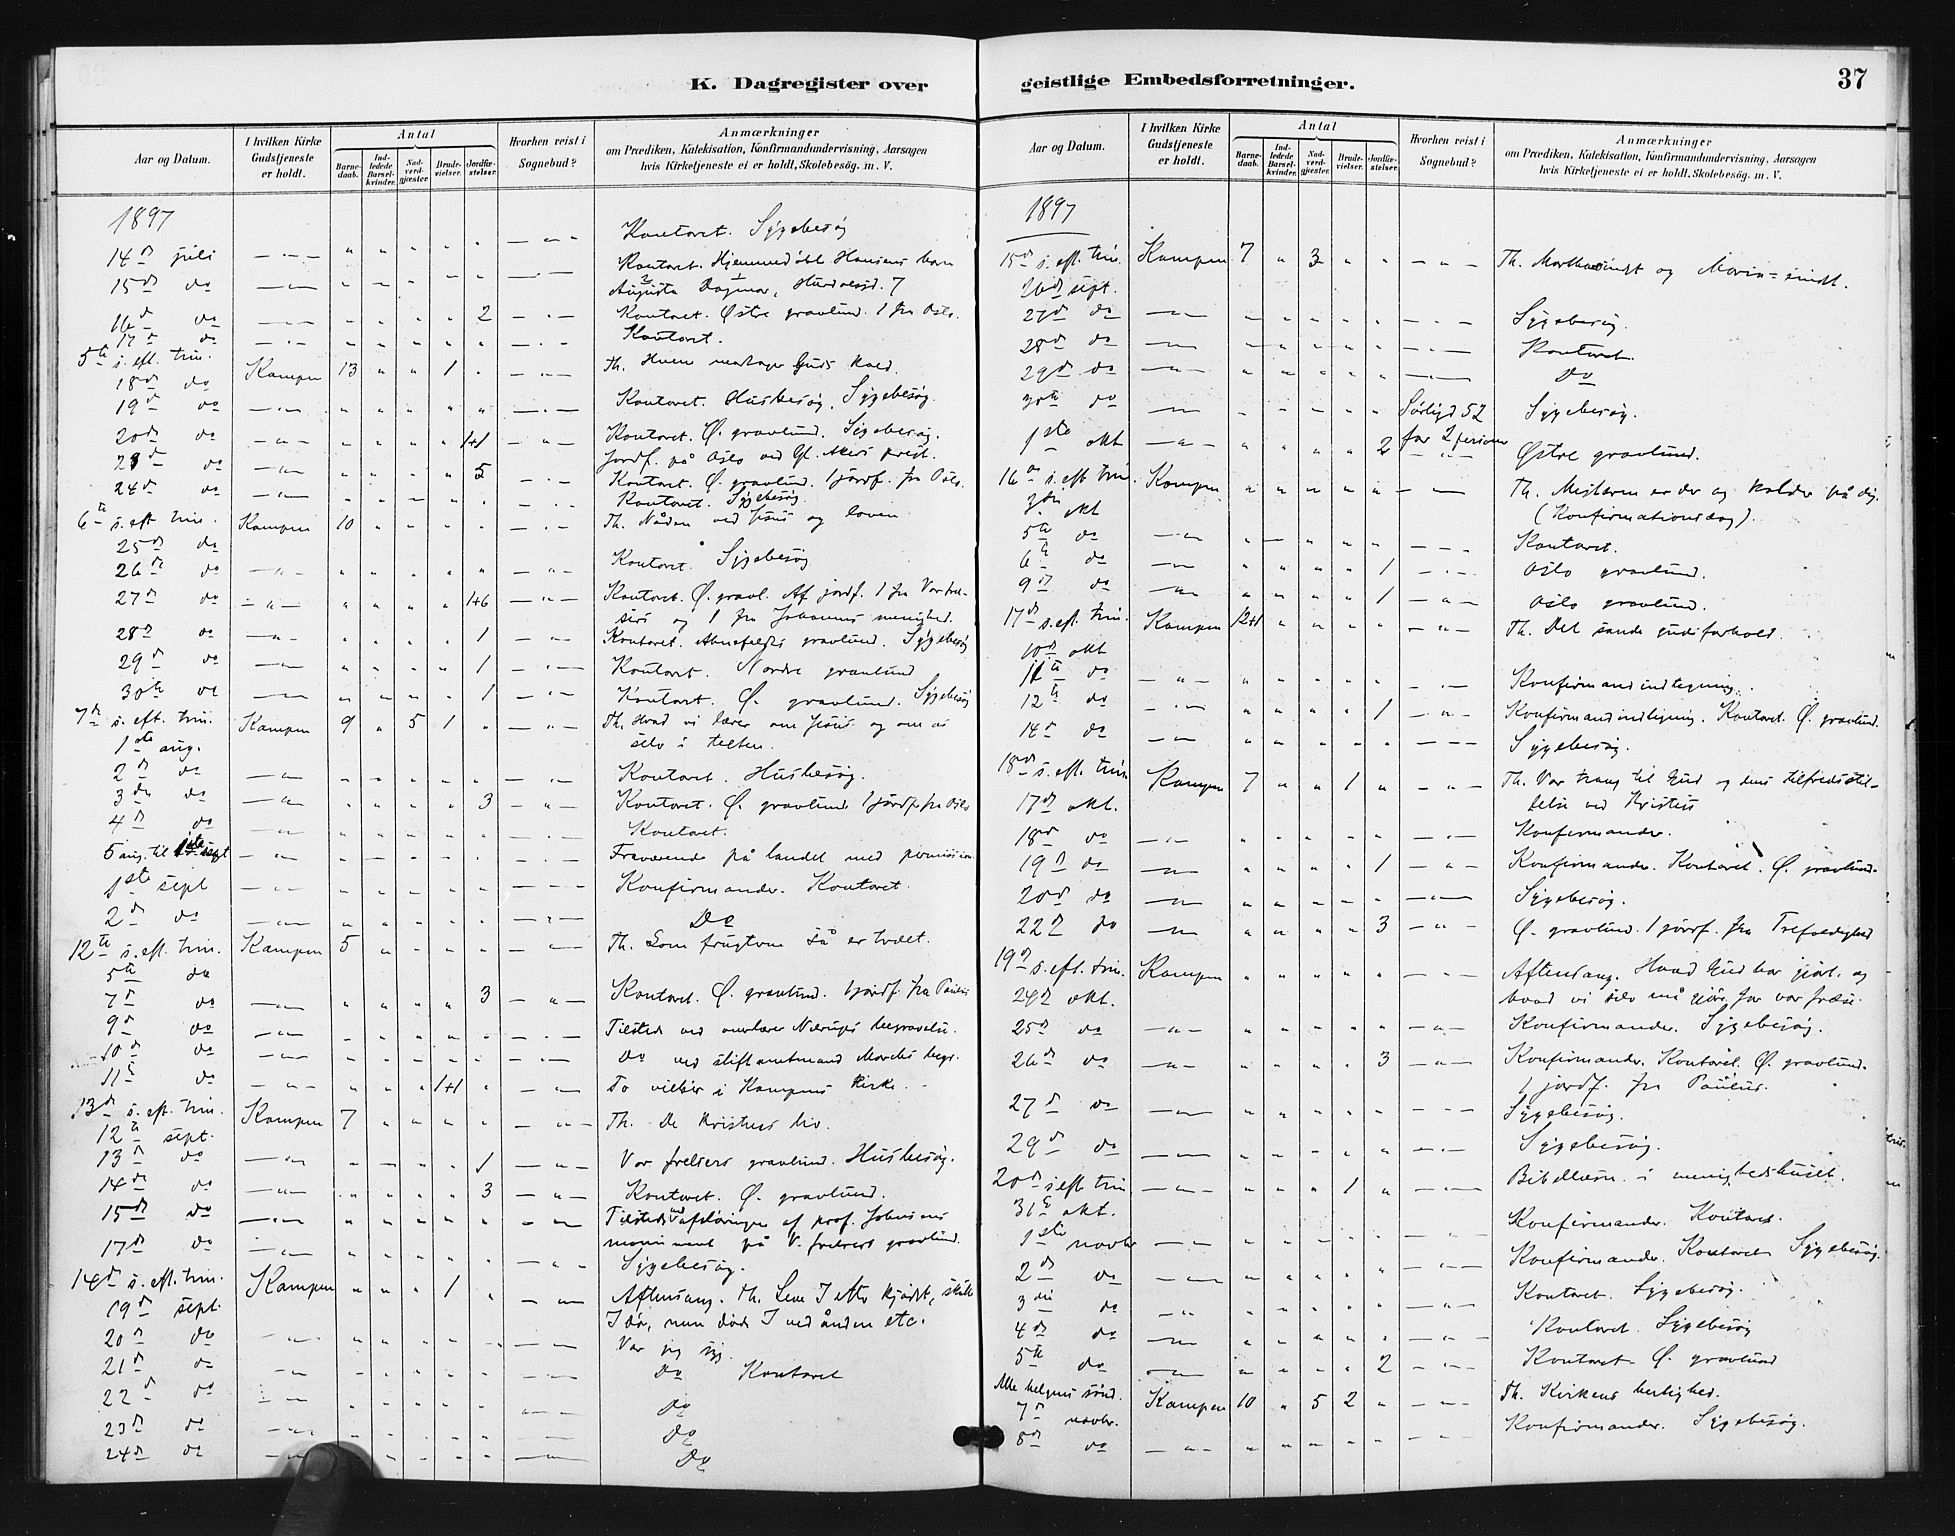 K. Dagregister over
Aar og Datum.
I hvilken Kirke Gudstjeneste er holdt.
Antal
Barnedaab.
Indledede Barselkvinder.
Nadverdgjæster
Brudevielser.
Jordfæstelser.
Hvorhen reist i Sognebud?
Anmærkninger
om Prædiken, Katekisation, Konfirmandundervisning, Aarsagen
hvis Kirketjeneste ei er holdt, Skolebesög. m. V.
1897
14 juli Kontoret. Sygebesög
15 do Kontoret. Hjemmedöbt Hansens barn
Augusta Dagmar, Hurdalsgd. 7
16 do 2 Kontoret. Østre gravlund. 1 fra Oslo.
17 do Kontoret.
5te s. eft. trin. Kampen 13 1 Th. Hvem modtager Guds kald.
18 do
19 do Kontoret. Husbesög. Sygebesög.
20 do 1+1 Kontoret. Ø. gravlund. Sygebesög.
Jordf. på Oslo ved Gl. Akers prest.
23 do 5 Kontoret. Ø. gravlund. 1 jordf. fra Oslo.
24 do Kontoret. Sygebesög.
6te s. eft. trin. Kampen 10 Th. Nåden ved Jesus og loven
25 do
26 do Kontoret. Sygebesög
27 do 1+6 Kontoret. Ø. gravl. Af jordf. 1 fra Vor frel-
sers og 1 fra Johannes menighed.
28 do 1 Kontoret. gravlund. Sygebesög
29 do 1 Kontoret. Nordre gravlund
30te do 1 Kontoret. Ø. gravlund. Sygebesög
7de s. eft. trin. Kampen 9 5 1 Th. Hvad vi lærer om Jesus og om os
1ste aug. selv i teksten.
2 do Kontoret. Husbesög.
3die do 3 Kontoret. Ø. gravlund. 1 jordf. fra Oslo
4 do Kontoret.
5 aug. til 1ste sept Fraværende på landet med permission.
1ste sept Konfirmander. Kontoret.
2 do Do
12te s. eft. trin. Kampen 5 Th. Som frugten så er trædet.
5te do
7 do 3 Kontoret. Ø. gravlund. 1 jordf. fra Paulus
9 do Tilstede ved overlærer begravelse.
10 do Do ved stiftamtmand begr.
11 do 1+1 To vielser i Kampens Kirke.
13de s. eft. trin. Kampen 7 Th. De kristnes liv.
12te sept.
13 do 1 Vor frelsers gravlund. Husbesög.
14de do 3 Kontoret. Ø. gravlund.
15 do Tilstede ved afsløringen af prof. Johnsens
monument på V. frelsers gravlund.
17 do Sygebesög.
14de s. eft. trin. Kampen 1 Aftensang. Th. Leve I efter kjödet, skulle
19 sept. I dö, men döde I ved ånden etc.
20 do Var jeg syg.
21 do Do Kontoret
22 do Do
23 do Do
24de do Do
geistlige Embedsforretninger.
37
Aar og Datum.
I hvilken Kirke Gudstjeneste er holdt.
Antal
Barnedaab.
Indledede Barselkvinder.
Nadverdgjæster
Brudevielser.
Jordfæstelser.
Hvorhen reist i Sognebud?
Anmærkninger
om Prædiken, Katekisation, Konfirmandundervisning, Aarsagen
hvis Kirketjeneste ei er holdt, Skolebesög. m. V.
1897
15de s. eft. trin. Kampen 7 3 Th. Marthasindet og Maria=sindet.
26de sept.
27 do Sygebesög.
28 do Kontoret.
29 do Do
30te do 52 Sygebesög.
for 2 personer
1ste okt 2 Østre gravlund.
16de s. eft trin. Kampen Th. Mesteren er der og kalder på dig.
3die okt (Konfirmationsdag).
5te do Kontoret.
6te do 1 Oslo gravlund.
9 do 1 Oslo gravlund.
17de s. eft. trin. Kampen 12+1 Th. Det sande gudsforhold.
10de okt
11te do Konfirmandindtegning.
12te do 1 Konfirmandindtegning. Kontoret. Ø. gravlund.
14 do Sygebesög.
18de s. eft. trin Kampen 7 1 Th. Vor trang til Gud og dens tilfredsstil-
17de okt. lelse ved Kristus
18 do Konfirmander.
19 do 1 Konfirmander. Kontoret. Ø. gravlund.
20de do Sygebesög.
22 do 3 Ø. gravlund. 1 jordf. fra Trefoldighed
19de s. eft. trin. Kampen Aftensang. Hvad Gud har gjort, og
24 okt. hvad vi selv må gjöre for vor frelse.
25 do Konfirmander. Sygebesög.
26de do 3 Konfirmander. Kontoret. Ø. gravlund.
1 jordf. fra Paulus.
27 do Sygebesög.
29de do Sygebesög.
20de s. eft trin 1 Bibellæsn. i menighedshuset.
31te okt.
1ste novbr Konfirmander. Kontoret.
2 do Konfirmander. Kontoret. Sygebesög.
3die do Kontoret. Sygebesög.
4de do Kontoret. Sygebesög
5te do 2 Kontoret. Ø. gravlund
Alle helgens sönd. Kampen 10 5 2 Th. Kirkens herlighed.
7 novbr.
8 do Konfirmander. Sygebesög.